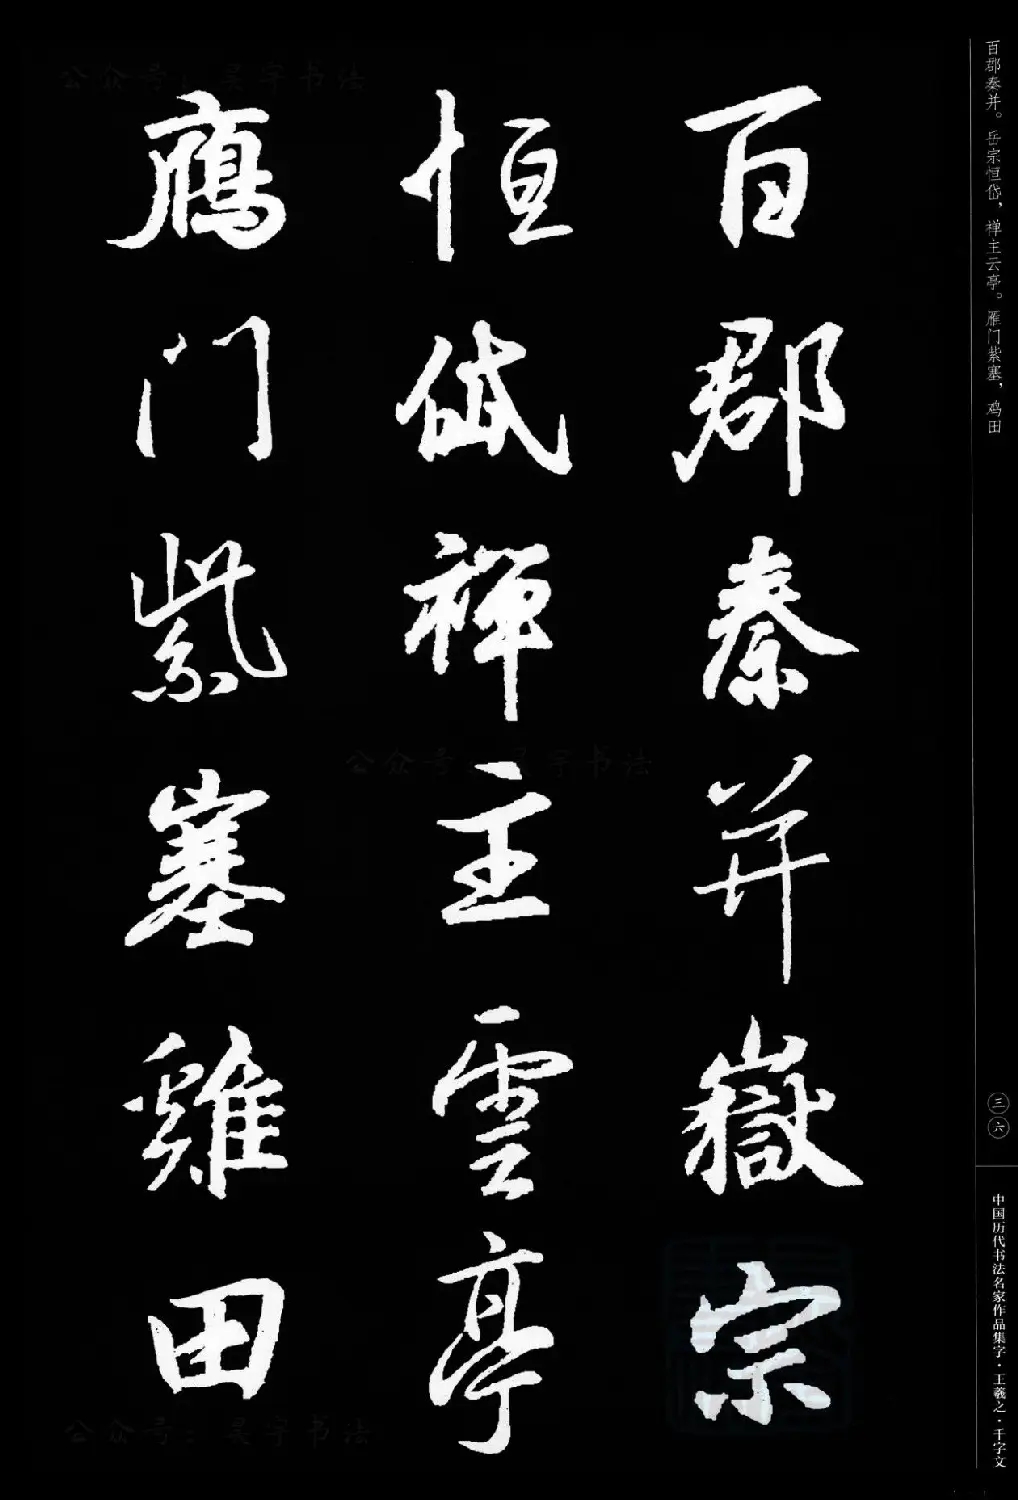 百郡秦并嶽宗
恒岱禪主雲亭
鴈门紫塞雞田
百郡秦并。岳宗恒岱，禅主云亭。雁门紫塞，鸡田
三六
中国历代书法名家作品集字·王羲之·千字文
公众号：昊宇书法
公众号：昊宇书法
公众号：昊宇书法